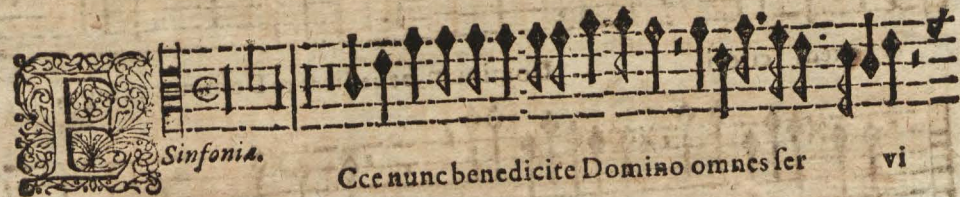 E
Sinfonia.
Cce nunc benedicite Domino omnes ſer vi